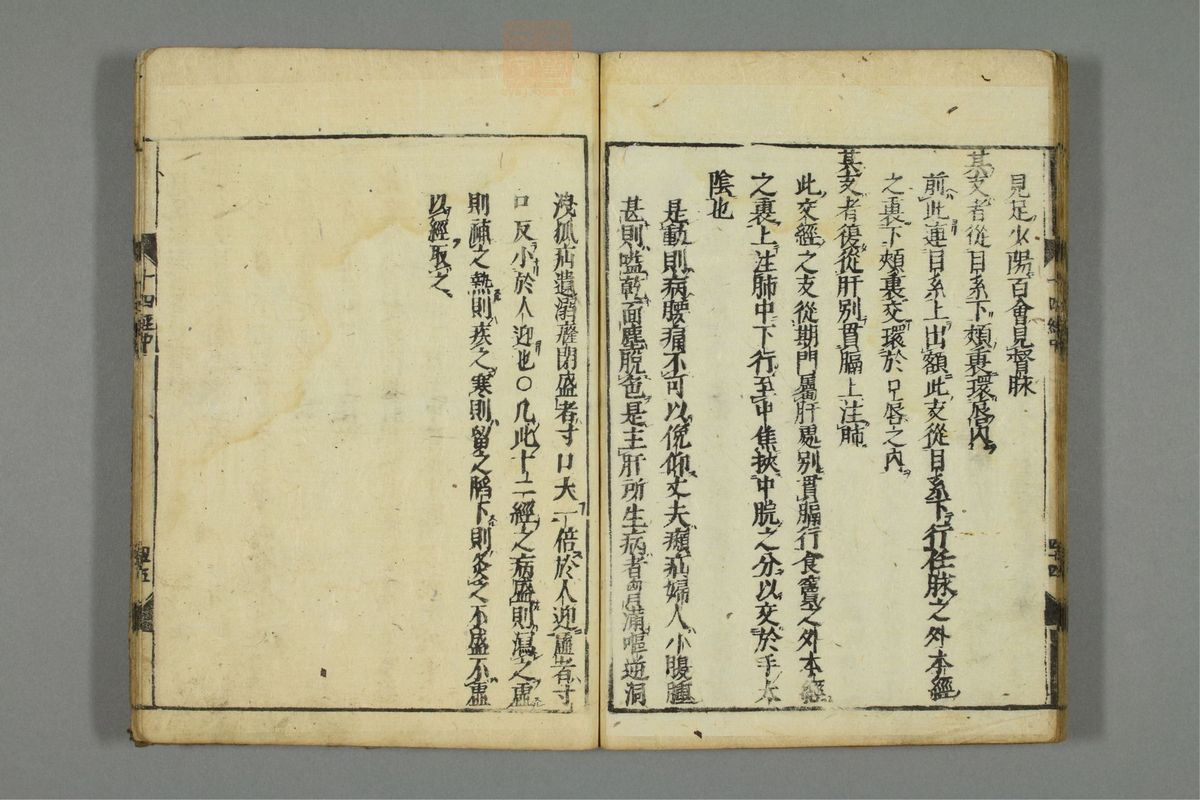 見足少陽百會見督脉
其支者從目系下頰裏環唇內
前此連目系上出額此支從目系下行任脉之外本經
之裏下頰裏交環於口唇之內
其支者復從肝別貫膈上注肺
此交經之支從期門屬肝處別貫膈行食竇之外本經
之裏上注肺中下行至中焦挾中脘之分以交於手太
陰也
是動則病腰痛不可以俛仰丈夫㿗疝婦人小腹腫
甚則嗌乾面塵脫色是主肝所生病者胷滿嘔逆洞
洩狐疝遺溺癃閉盛者寸口大一倍於人迎虛者寸
口反小於人迎也○凡此十二經之病盛則瀉之虛
則補之熱則疾之寒則留之陷下則灸之不盛不虛
以經取之
十四經中
四十五
十四經中
四十四